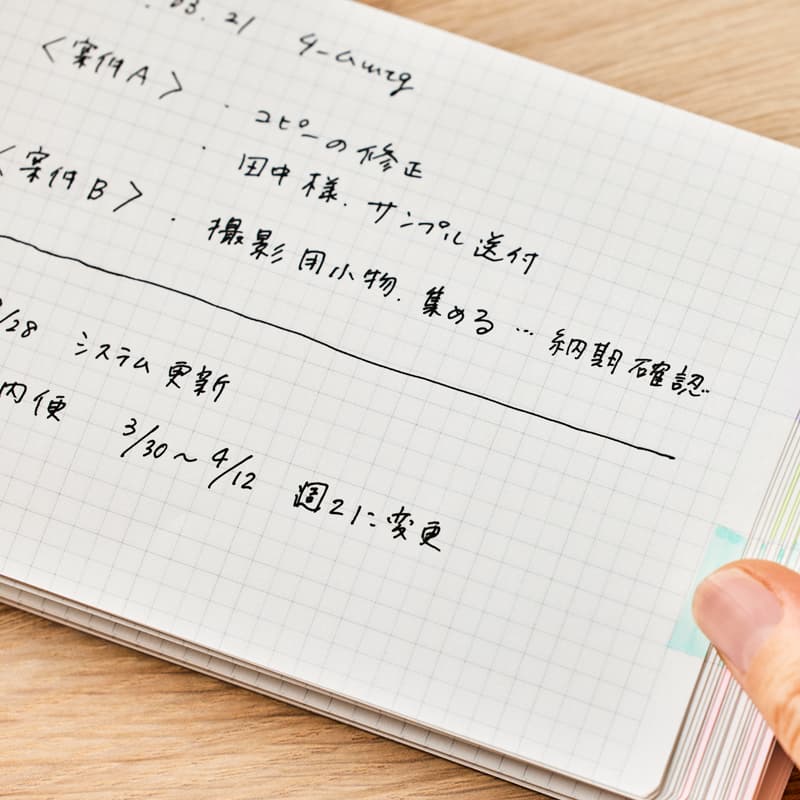 .03.21 チームmtg
<案件A> ・コピーの修正
・田中様、サンプル送付
<案件B> ・撮影用小物、集める…納期確認
/28 システム更新
内便 3/30~4/12 週2に変更